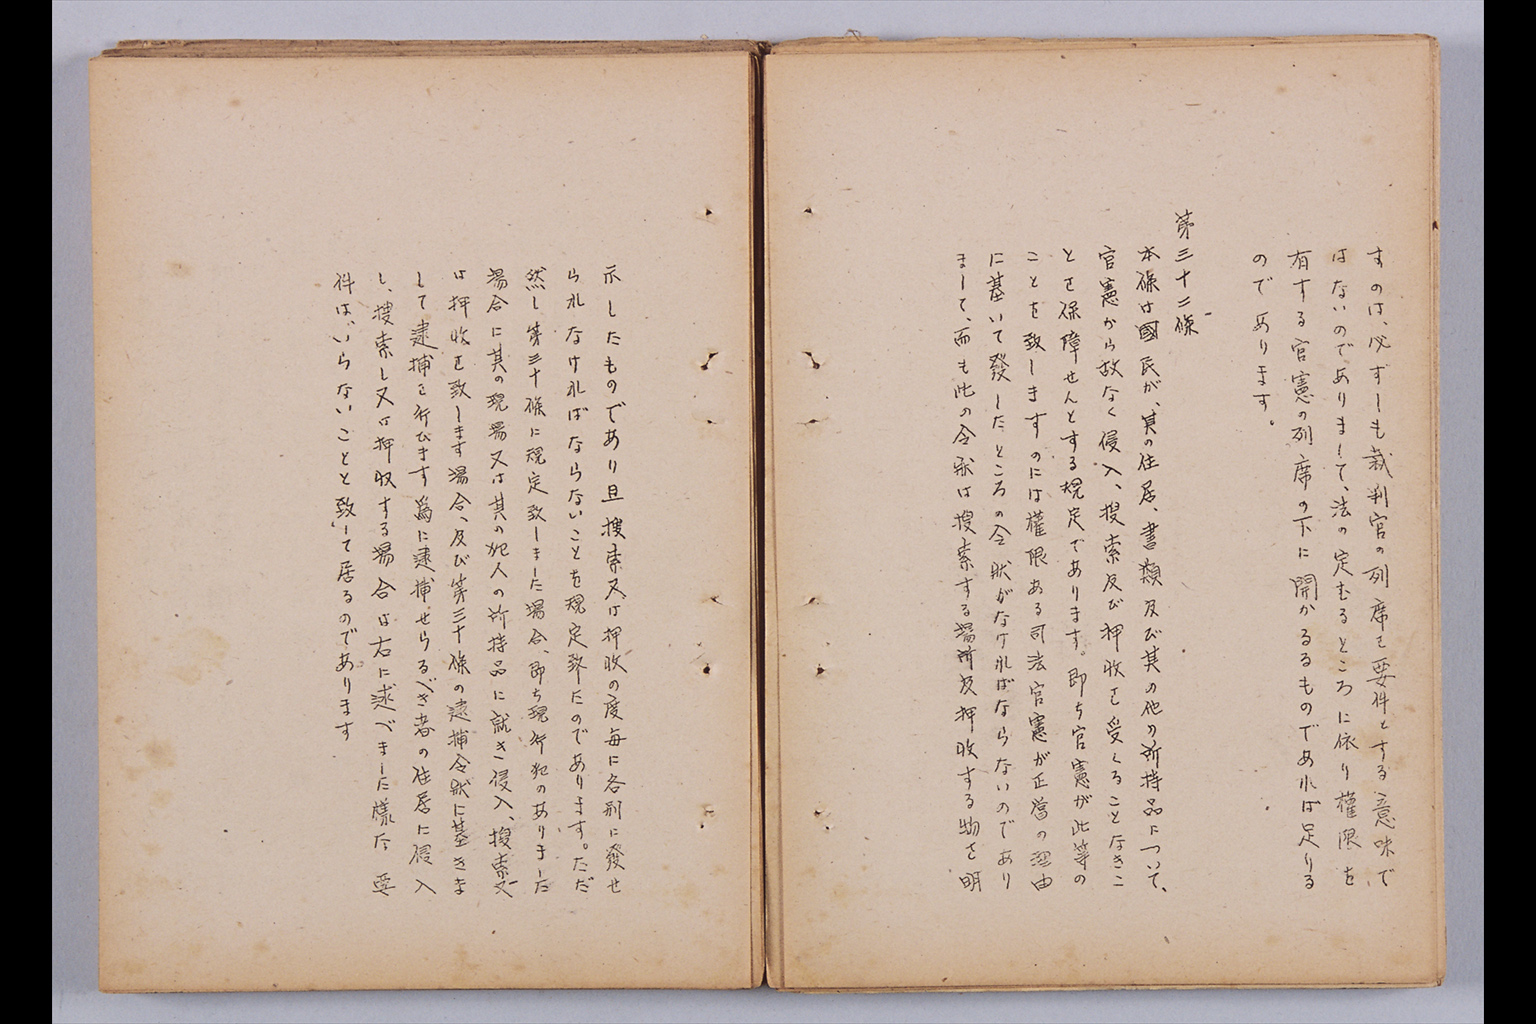 すのは、必ずしも裁判官の列席を要件とする意味で
はないのでありまして、法の定むるところに依り權限を
有する官憲の列席の下に開かるるものであれば足りる
のであります。
第三十二條
本條は國民が、其の住居、書類及び其の他の所持品について、
官憲から故なく侵入、搜索及び押收を受くることなきこ
とを保障せんとする規定であります。即ち官憲が此等の
ことを致しますのには權限ある司法官憲が正當の理由
に基いて發したところの令狀がなければならないのであり
まして、而も此の令狀は搜索する場所及押收する物を明
示したものであり且搜索又は押收の度每に各別に發せ
られなければならないことを規定致たのであります。ただ
然し第三十條に規定致しました場合、即ち現行犯のありました
場合に其の現場又は其の犯人の所持品に就き侵入、搜索又
は押收を致します場合、及び第三十條の逮捕令狀に基きま
して逮捕を行ひます爲に逮捕せらるべき者の住居に侵入
し、搜索し又は押收する場合は右に述べました樣な要
件は、いらないことと致して居るのであります